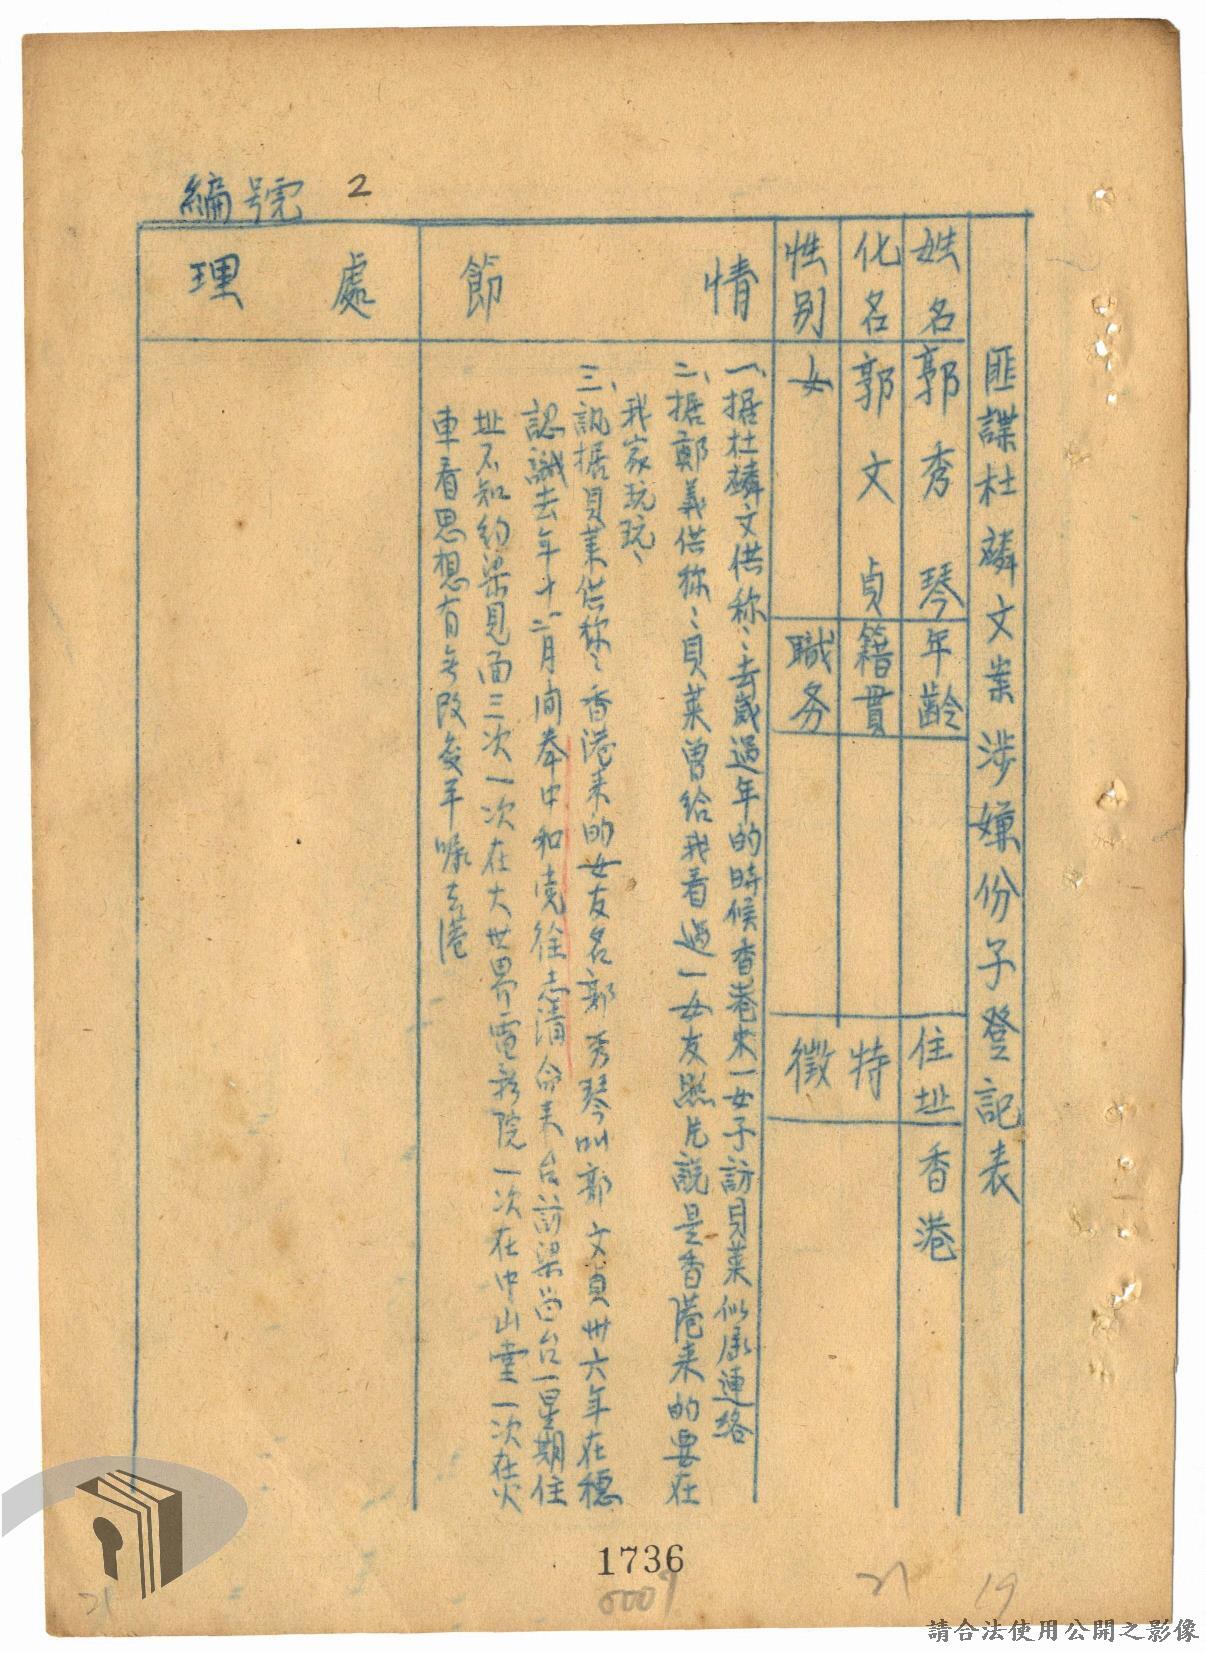 編號 2
匪諜杜麟文案涉嫌份子登記表
姓名 郭秀琴 年齡 住址 香港
化名 郭文貞 籍貫 特徵
性別 女 職务
情節
一、据杜麟文供称：去歲過年的時候香港來一女子訪貝萊似康連絡
二、据鄭義供称：貝萊曾給我看過一女友照片說是香港来的要在
我家玩玩、
三、訊据貝萊供称：香港来的女友名郭秀琴叫郭文貞卅六年在穗
認識去年十一二月間奉中和党徐志清命来台訪梁尚台一星期住
址不知約梁見面三次一次在大世界電影院一次在中山堂一次在火
車看思想有無改變半嘛去港
處理
1736
21
19
請合法使用公開之影像